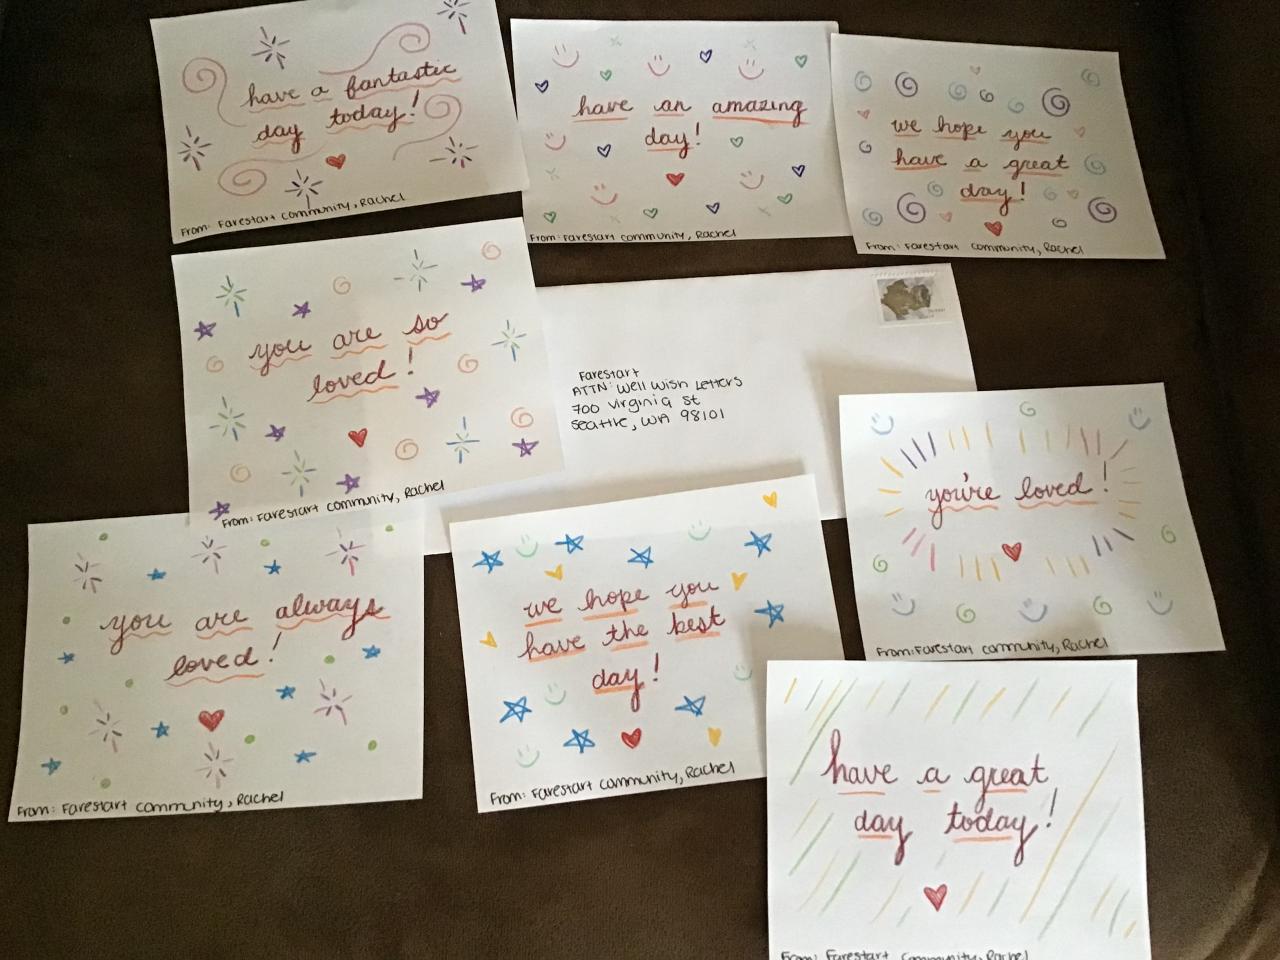 have a fantastic
day today!
From: Farestart community, Rachel
have an amazing
day!
From: Farestart community, Rachel
we hope you
have a great
day!
From: Farestart community, Rachel
you are so
loved!
From: Farestart community, Rachel
Farestart
ATTN: Well Wish Letters
700 Virginia St
Seattle, WA 98101
you're loved!
From: Farestart community, Rachel
you are always
loved!
From: Farestart community, Rachel
we hope you
have the best
day!
From: Farestart community, Rachel
have a great
day today!
From: Farestart community, Rachel